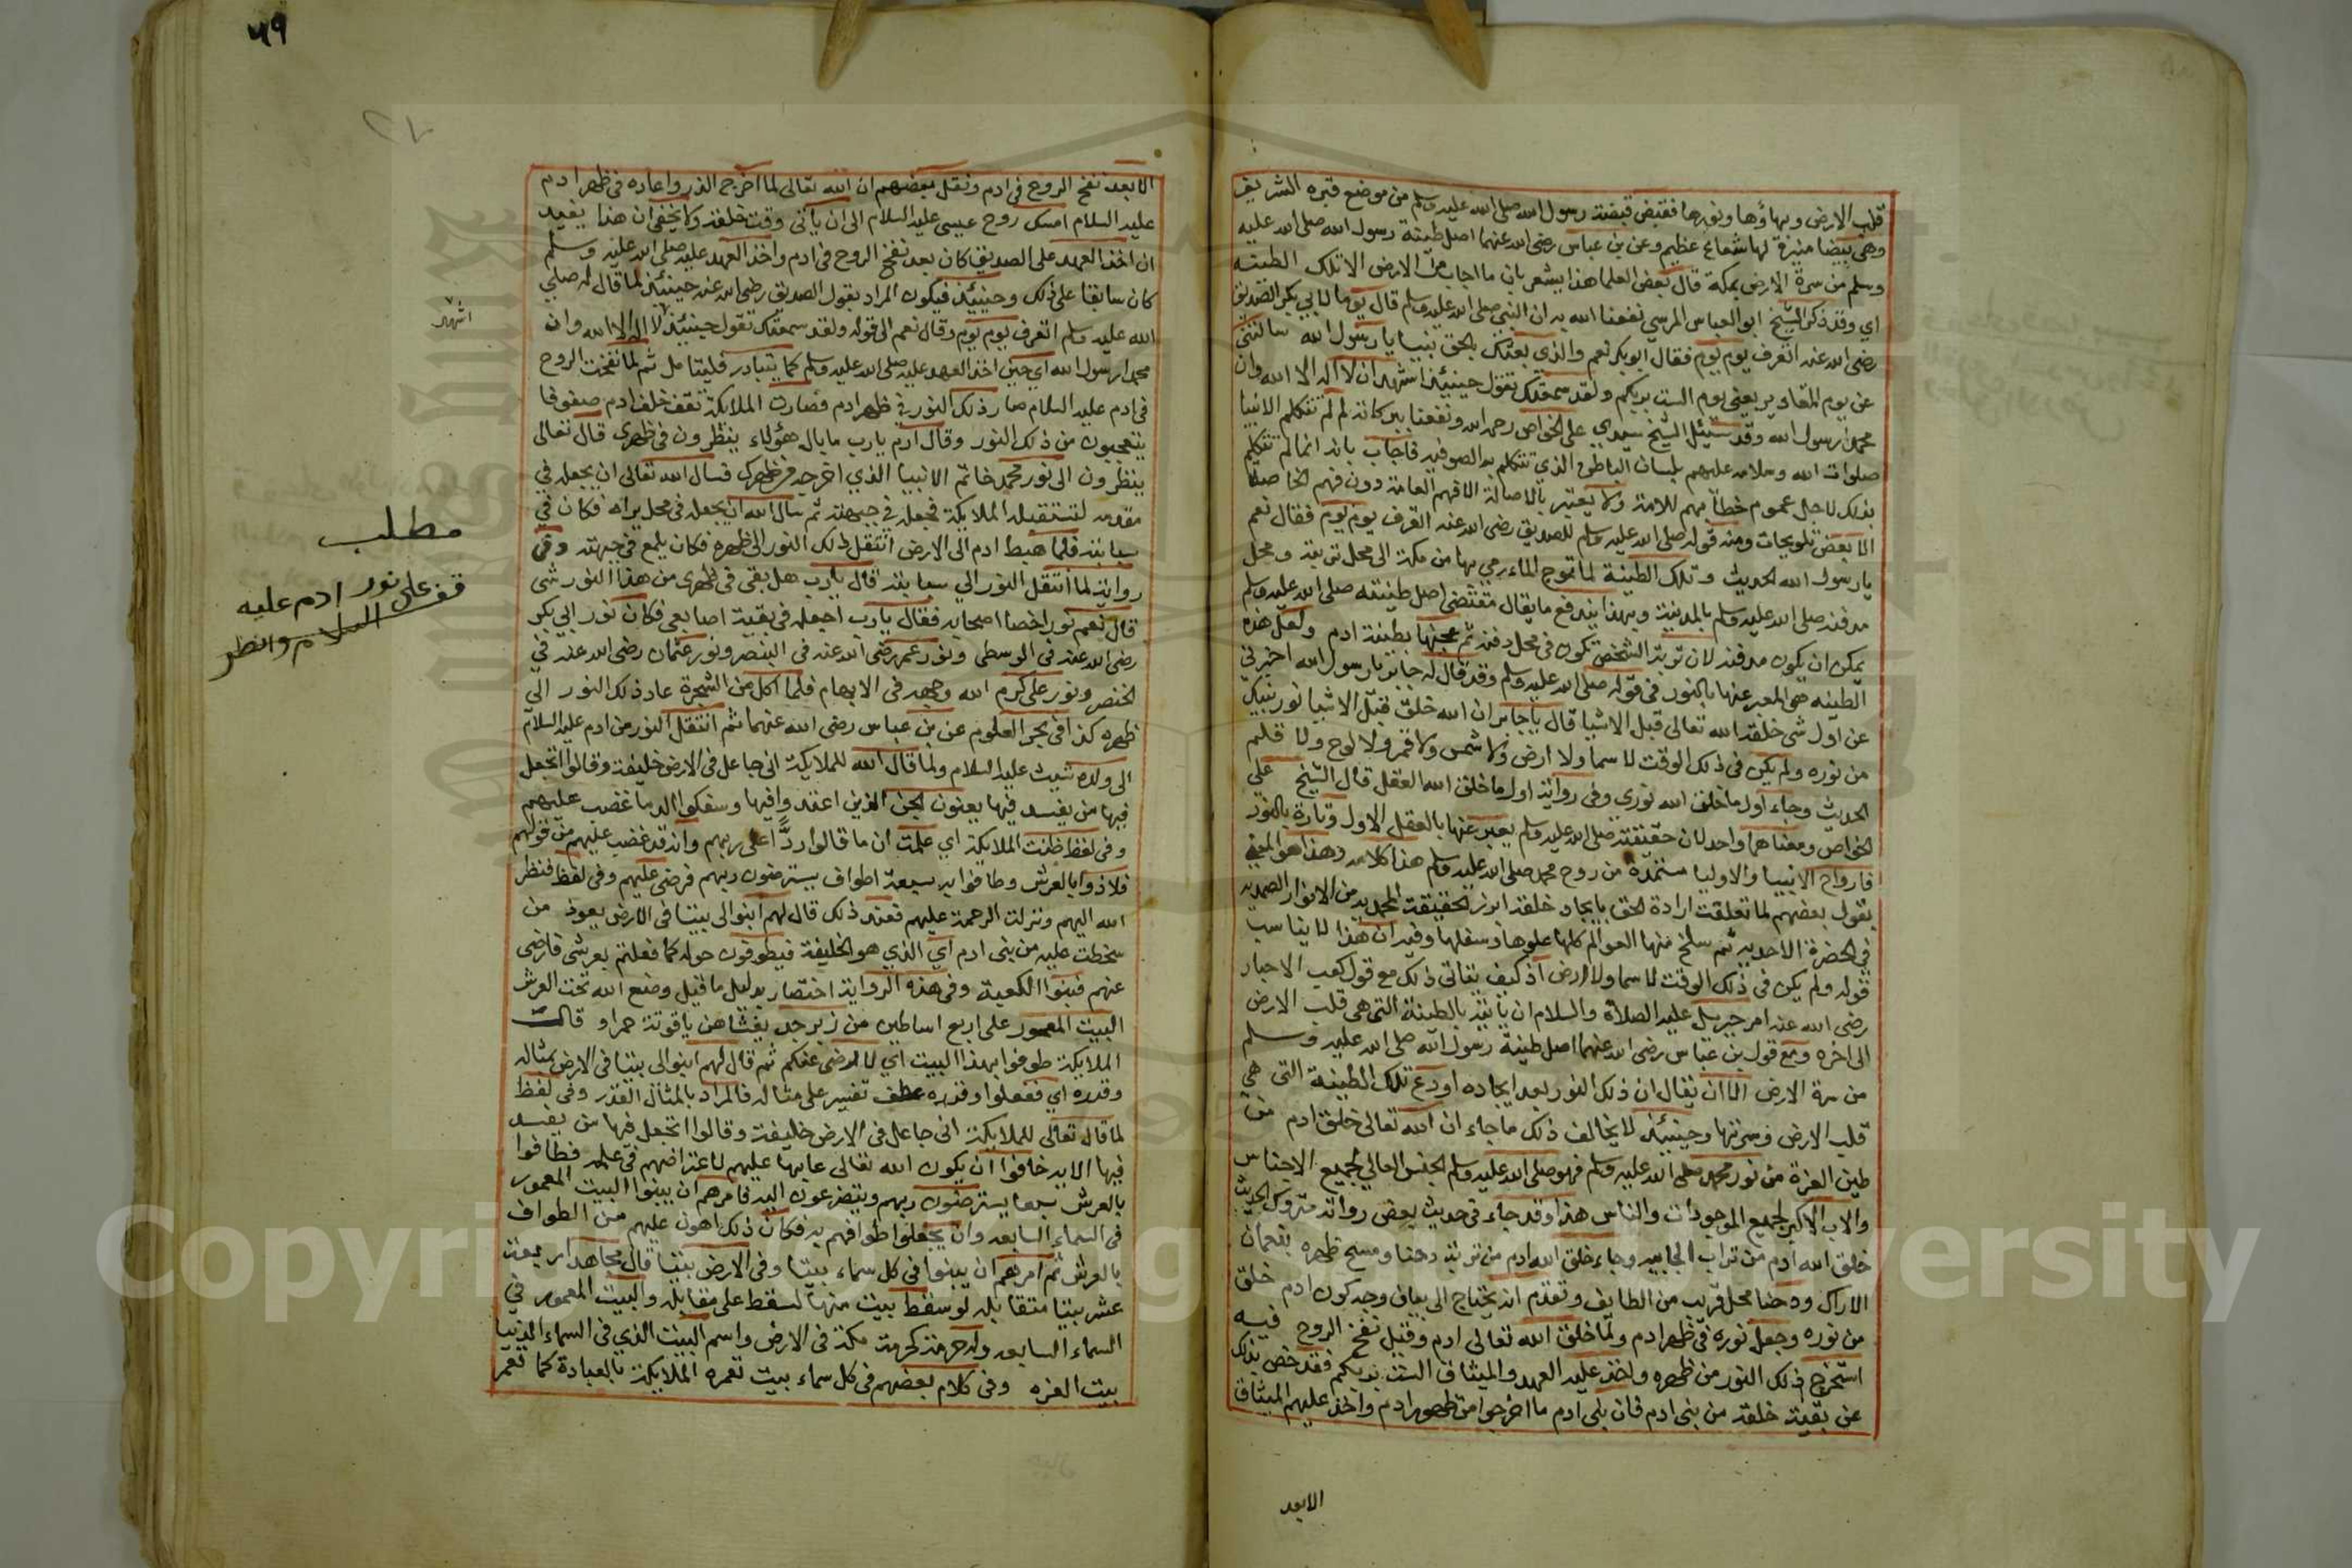 قلب الارض وبهاؤها ونورها فقبض قبضة رسول الله صلى الله عليه وسلم من موضع قبره الشريف
وهي بيضا منيرة لها شعاع عظيم وعن بن عباس رضي الله عنهما اصل طينة رسول الله صلى الله عليه
وسلم من سرة الارض بمكة قال بعض العلما هذا يشعر بان ما اجاب من الارض الا تلك الطينه
اي وقد ذكر الشيخ ابو العباس المرسي نفعنا الله به ان النبي صلى الله عليه وسلم قال يوما لابي بكر الصديق
رضي الله عنه اتعرف يوم يوم فقال ابو بكر نعم والذي بعثك بالحق نبيا يا رسول الله سالتني
عن يوم المقادير يعني يوم الست بربكم ولقد سمعتك تقول حينئذ اشهد ان لا اله الا الله وان
محمدا رسول الله وقد سئل الشيخ سيدي علي الخواص رحمه الله ونفعنا ببركاته لم لم تتكلم الانبيا
صلوات الله وسلامه عليهم بلسان الباطن الذي تتكلم به الصوفيه فاجاب بانه انما لم تتكلم
بذلك لاجل عموم خطابهم للامة ولا يعتبر بالاصالة الا فهم العامة دون فهم الخاصة
الا بعض تلويحات ومنه قوله صلى الله عليه وسلم للصديق رضي الله عنه اتعرف يوم يوم فقال نعم
يا رسول الله الحديث وتلك الطينة لما تموج الماء رمي بها من مكة الى محل تربته ومحل
مدفنه صلى الله عليه وسلم بالمدينة وبهذا يندفع ما يقال مقتضى اصل طينته صلى الله عليه وسلم
يمكن ان يكون مدفنه لان تربة الشخص تكون في محل دفنه ثم عجنها بطينة ادم ولعل هذه
الطينه هي المعبر عنها بالنور في قوله صلى الله عليه وسلم وقد قال له جابر يا رسول الله اخبرني
عن اول شي خلقه الله تعالى قبل الاشيا قال يا جابر ان الله خلق قبل الاشيا نور نبيك
من نوره ولم يكن في ذلك الوقت لا سما ولا ارض ولا شمس ولا قمر ولا لوح ولا قلم
الحديث وجاء اول ما خلق الله نوري وفي رواية اول ما خلق الله العقل قال الشيخ علي
الخواص ومعناهما واحد لان حقيقته صلى الله عليه وسلم يعبر عنها بالعقل الاول وتارة بالنور
فارواح الانبيا والاوليا مستمدة من روح محمد صلى الله عليه وسلم هذا كلامه وهذا هو المعني
بقول بعضهم لما تعلقت ارادة الحق بايجاد خلقه ابرز الحقيقة المحمديه من الانوار الصمديه
في الحضرة الاحديه ثم سلخ منها العوالم كلها علوها وسفلها وفيه ان هذا لا يناسب
قوله ولم يكن في ذلك الوقت لا سما ولا ارض اذ كيف يتاتى ذلك مع قول كعب الاحبار
رضي الله عنه امر جبريل عليه الصلاة والسلام ان ياتيه بالطينة التي هي قلب الارض
الى اخره ومع قول بن عباس رضي الله عنهما اصل طينة رسول الله صلى الله عليه وسلم
من سرة الارض الا ان يقال ان ذلك النور بعد ايجاده اودع تلك الطينة التي هي
قلب الارض وسرتها وحينئذ لا يخالف ذلك ما جاء ان الله تعالى خلق ادم من
طين العزة من نور محمد صلى الله عليه وسلم فهو صلى الله عليه وسلم الجنس العالي لجميع الاجناس
والاب الاكبر لجميع الموجودات والناس هذا وقد جاء في حديث بعض رواته متروك الحديث
خلق الله ادم من تراب الجابيه وجاء خلق الله ادم من تربة دحنا ومسح ظهره بنعمان
الاراك ودحنا محل قريب من الطايف وتقدم انه يحتاج الى بيان وجه كون ادم خلق
من نوره وجعل نوره في ظهر ادم ولما خلق الله تعالى ادم وقبل نفخ الروح فيه
استخرج ذلك النور من ظهره واخذ عليه العهد والميثاق الست بربكم فقد خص بذلك
عن بقية خلقه من بني ادم فان بني ادم ما اخرجوا من ظهر ادم واخذ عليهم الميثاق
الا بعد
٥٩
الا بعد نفخ الروح في ادم ونقل بعضهم ان الله تعالى لما اخرج الذر واعاده في ظهر ادم
عليه السلام امسك روح عيسى عليه السلام الى ان ياتي وقت خلقه ولا يخفى ان هذا يفيد
ان اخذ العهد على الصديق كان بعد نفخ الروح في ادم واخذ العهد عليه صلى الله عليه وسلم
كان سابقا على ذلك وحينئذ فيكون المراد بقول الصديق رضي الله عنه حينئذ لما قال له صلى
الله عليه وسلم اتعرف يوم يوم وقال نعم الى قوله ولقد سمعتك تقول حينئذ لا اله الا الله وان
اشهد
محمدا رسول الله اي حين اخذ العهد عليه صلى الله عليه وسلم كما يتبادر فليتامل ثم لما نفخت الروح
في ادم عليه السلام صار ذلك النور في ظهر ادم فصارت الملايكة تقف خلف ادم صفوفا
يتعجبون من ذلك النور وقال ادم يا رب ما بال هؤلاء ينظرون في ظهري قال تعالى
ينظرون الى نور محمد خاتم الانبيا الذي اخرجه من ظهرك فسال الله تعالى ان يجعله في
مقدمه لتستقبله الملايكة فجعله في جبهته ثم سال الله ان يجعله في محل يراه فكان في
سبابته فلما هبط ادم الى الارض انتقل ذلك النور الى ظهره فكان يلمع في جبهته وفي
رواية لما انتقل النور الى سبابته قال يا رب هل بقي في ظهري من هذا النور شي
قال نعم نور اخصا اصحابه فقال يا رب اجعله في بقية اصابعي فكان نور ابي بكر
رضي الله عنه في الوسطى ونور عمر رضي الله عنه في البنصر ونور عثمان رضي الله عنه في
الخنصر ونور علي كرم الله وجهه في الابهام فلما اكل من الشجرة عاد ذلك النور الى
ظهره كذا في بحر العلوم عن بن عباس رضي الله عنهما ثم انتقل النور من ادم عليه السلام
الى ولده شيث عليه السلام ولما قال الله للملايكة اني جاعل في الارض خليفة وقالوا اتجعل
فيها من يفسد فيها يعنون الجن الذين اعتدوا فيها وسفكوا الدما غضب عليهم
وفي لفظ ظنت الملايكة اي علمت ان ما قالوا ردا على ربهم وانه قد غضب عليهم من قولهم
فلاذوا بالعرش وطافوا به سبعة اطواف يسترضون ربهم فرضي عليهم وفي لفظ فنظر
الله اليهم ونزلت الرحمة عليهم فعند ذلك قال لهم ابنوا لي بيتا في الارض يعوذ من
سخطت عليه من بني ادم اي الذي هو الخليفة فيطوفون حوله كما فعلتم بعرشي فارضى
عنهم فبنوا الكعبة وفي هذه الرواية اختصار بدليل ما قيل وضع الله تحت العرش
البيت المعمور على اربع اساطين من زبرجد يغشاهن ياقوتة حمرا وقالت
الملايكة طوفوا بهذا البيت اي لارضى عنكم ثم قال لهم ابنوا لي بيتا في الارض بمثاله
وقدره اي ففعلوا وقدره عطف تفسير على مثاله فالمراد بالمثال القدر وفي لفظ
لما قال تعالى للملايكة اني جاعل في الارض خليفة وقالوا اتجعل فيها من يفسد
فيها الايه خافوا ان يكون الله تعالى عابها عليهم لاعتراضهم في علمه فطافوا
بالعرش سبعا يسترضون ربهم ويتضرعون اليه فامرهم ان يبنوا البيت المعمور
في السماء السابعه وان يجعلوا طوافهم به فكان ذلك اهون عليهم من الطواف
بالعرش ثم امرهم ان يبنوا في كل سماء بيتا وفي الارض بيتا قال مجاهد اربعة
عشر بيتا متقابله لو سقط بيت منها لسقط على مقابله والبيت المعمور في
السماء السابعه وله حرمة كحرمة مكة في الارض واسم البيت الذي في السماء الدنيا
بيت العزه وفي كلام بعضهم في كل سماء بيت تعمره الملايكة بالعبادة كما تعمر
مطلب
قف على نور ادم عليه
السلام وانظر
Copyright © King Saud University